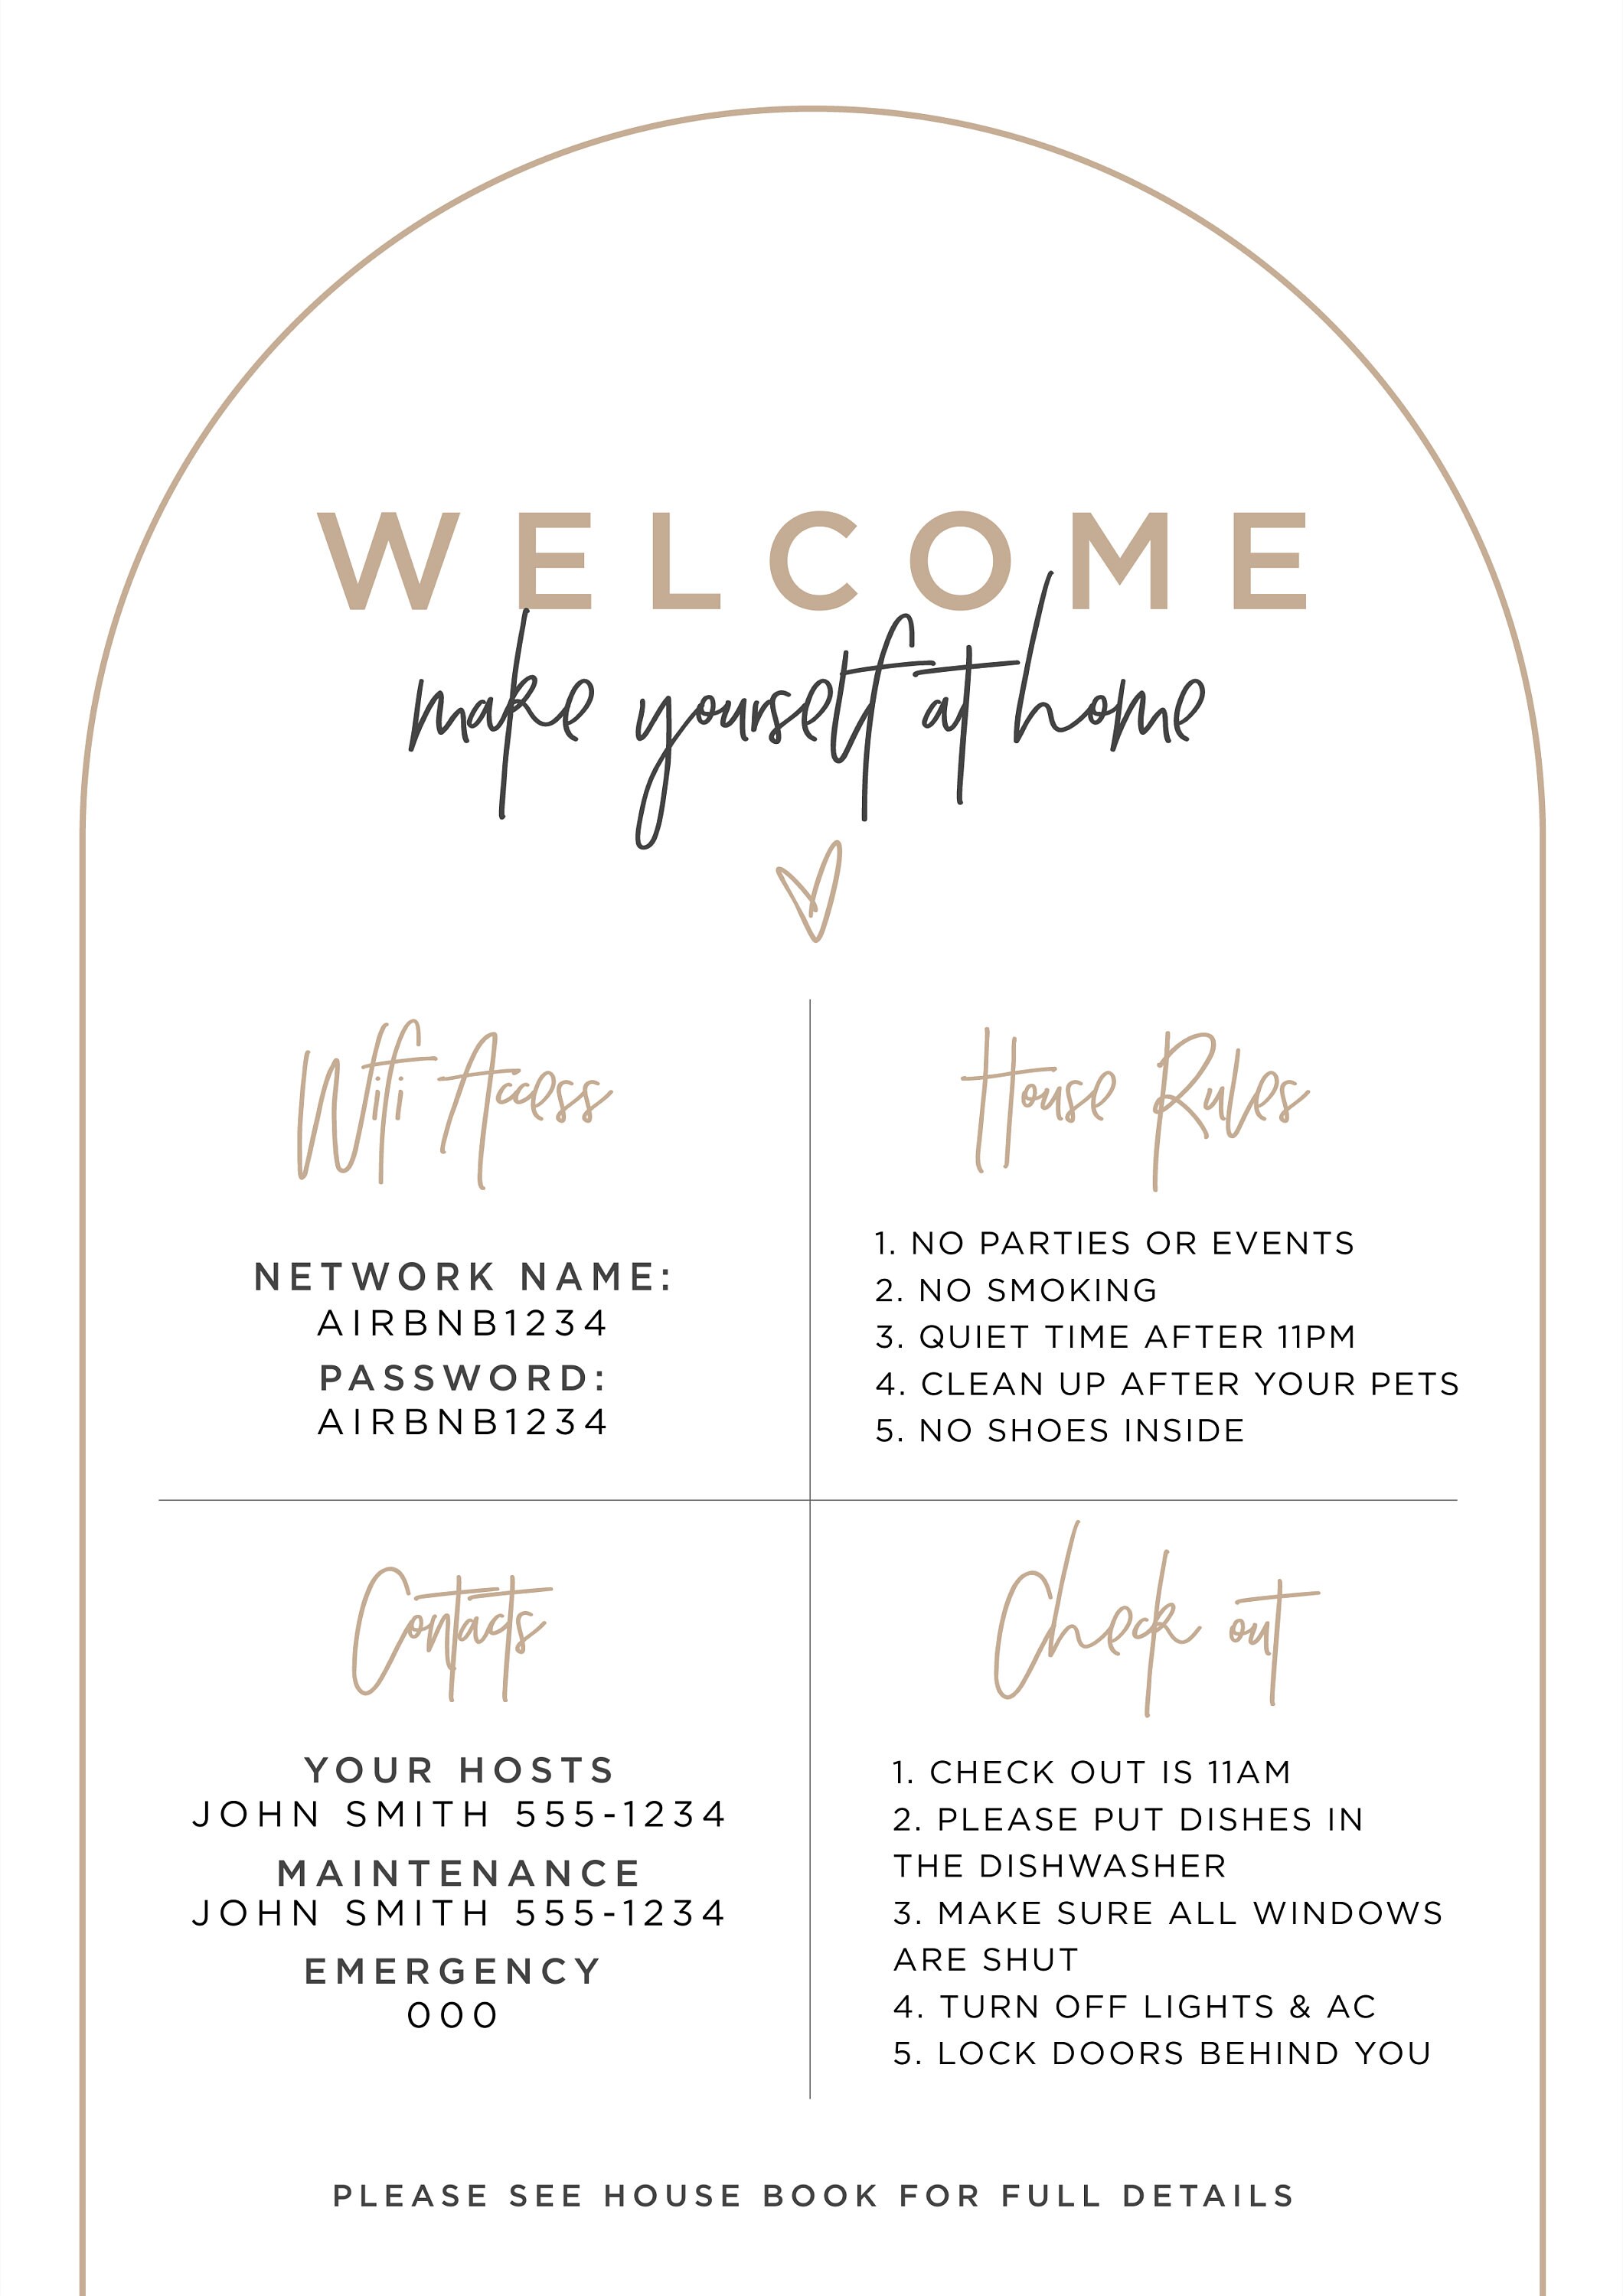 WELCOME
make yourself at home
Wifi Access
NETWORK NAME:
AIRBNB1234
PASSWORD:
AIRBNB1234
House Rules
1. NO PARTIES OR EVENTS
2. NO SMOKING
3. QUIET TIME AFTER 11PM
4. CLEAN UP AFTER YOUR PETS
5. NO SHOES INSIDE
Contacts
YOUR HOSTS
JOHN SMITH 555-1234
MAINTENANCE
JOHN SMITH 555-1234
EMERGENCY
000
Check out
1. CHECK OUT IS 11AM
2. PLEASE PUT DISHES IN
THE DISHWASHER
3. MAKE SURE ALL WINDOWS
ARE SHUT
4. TURN OFF LIGHTS & AC
5. LOCK DOORS BEHIND YOU
PLEASE SEE HOUSE BOOK FOR FULL DETAILS